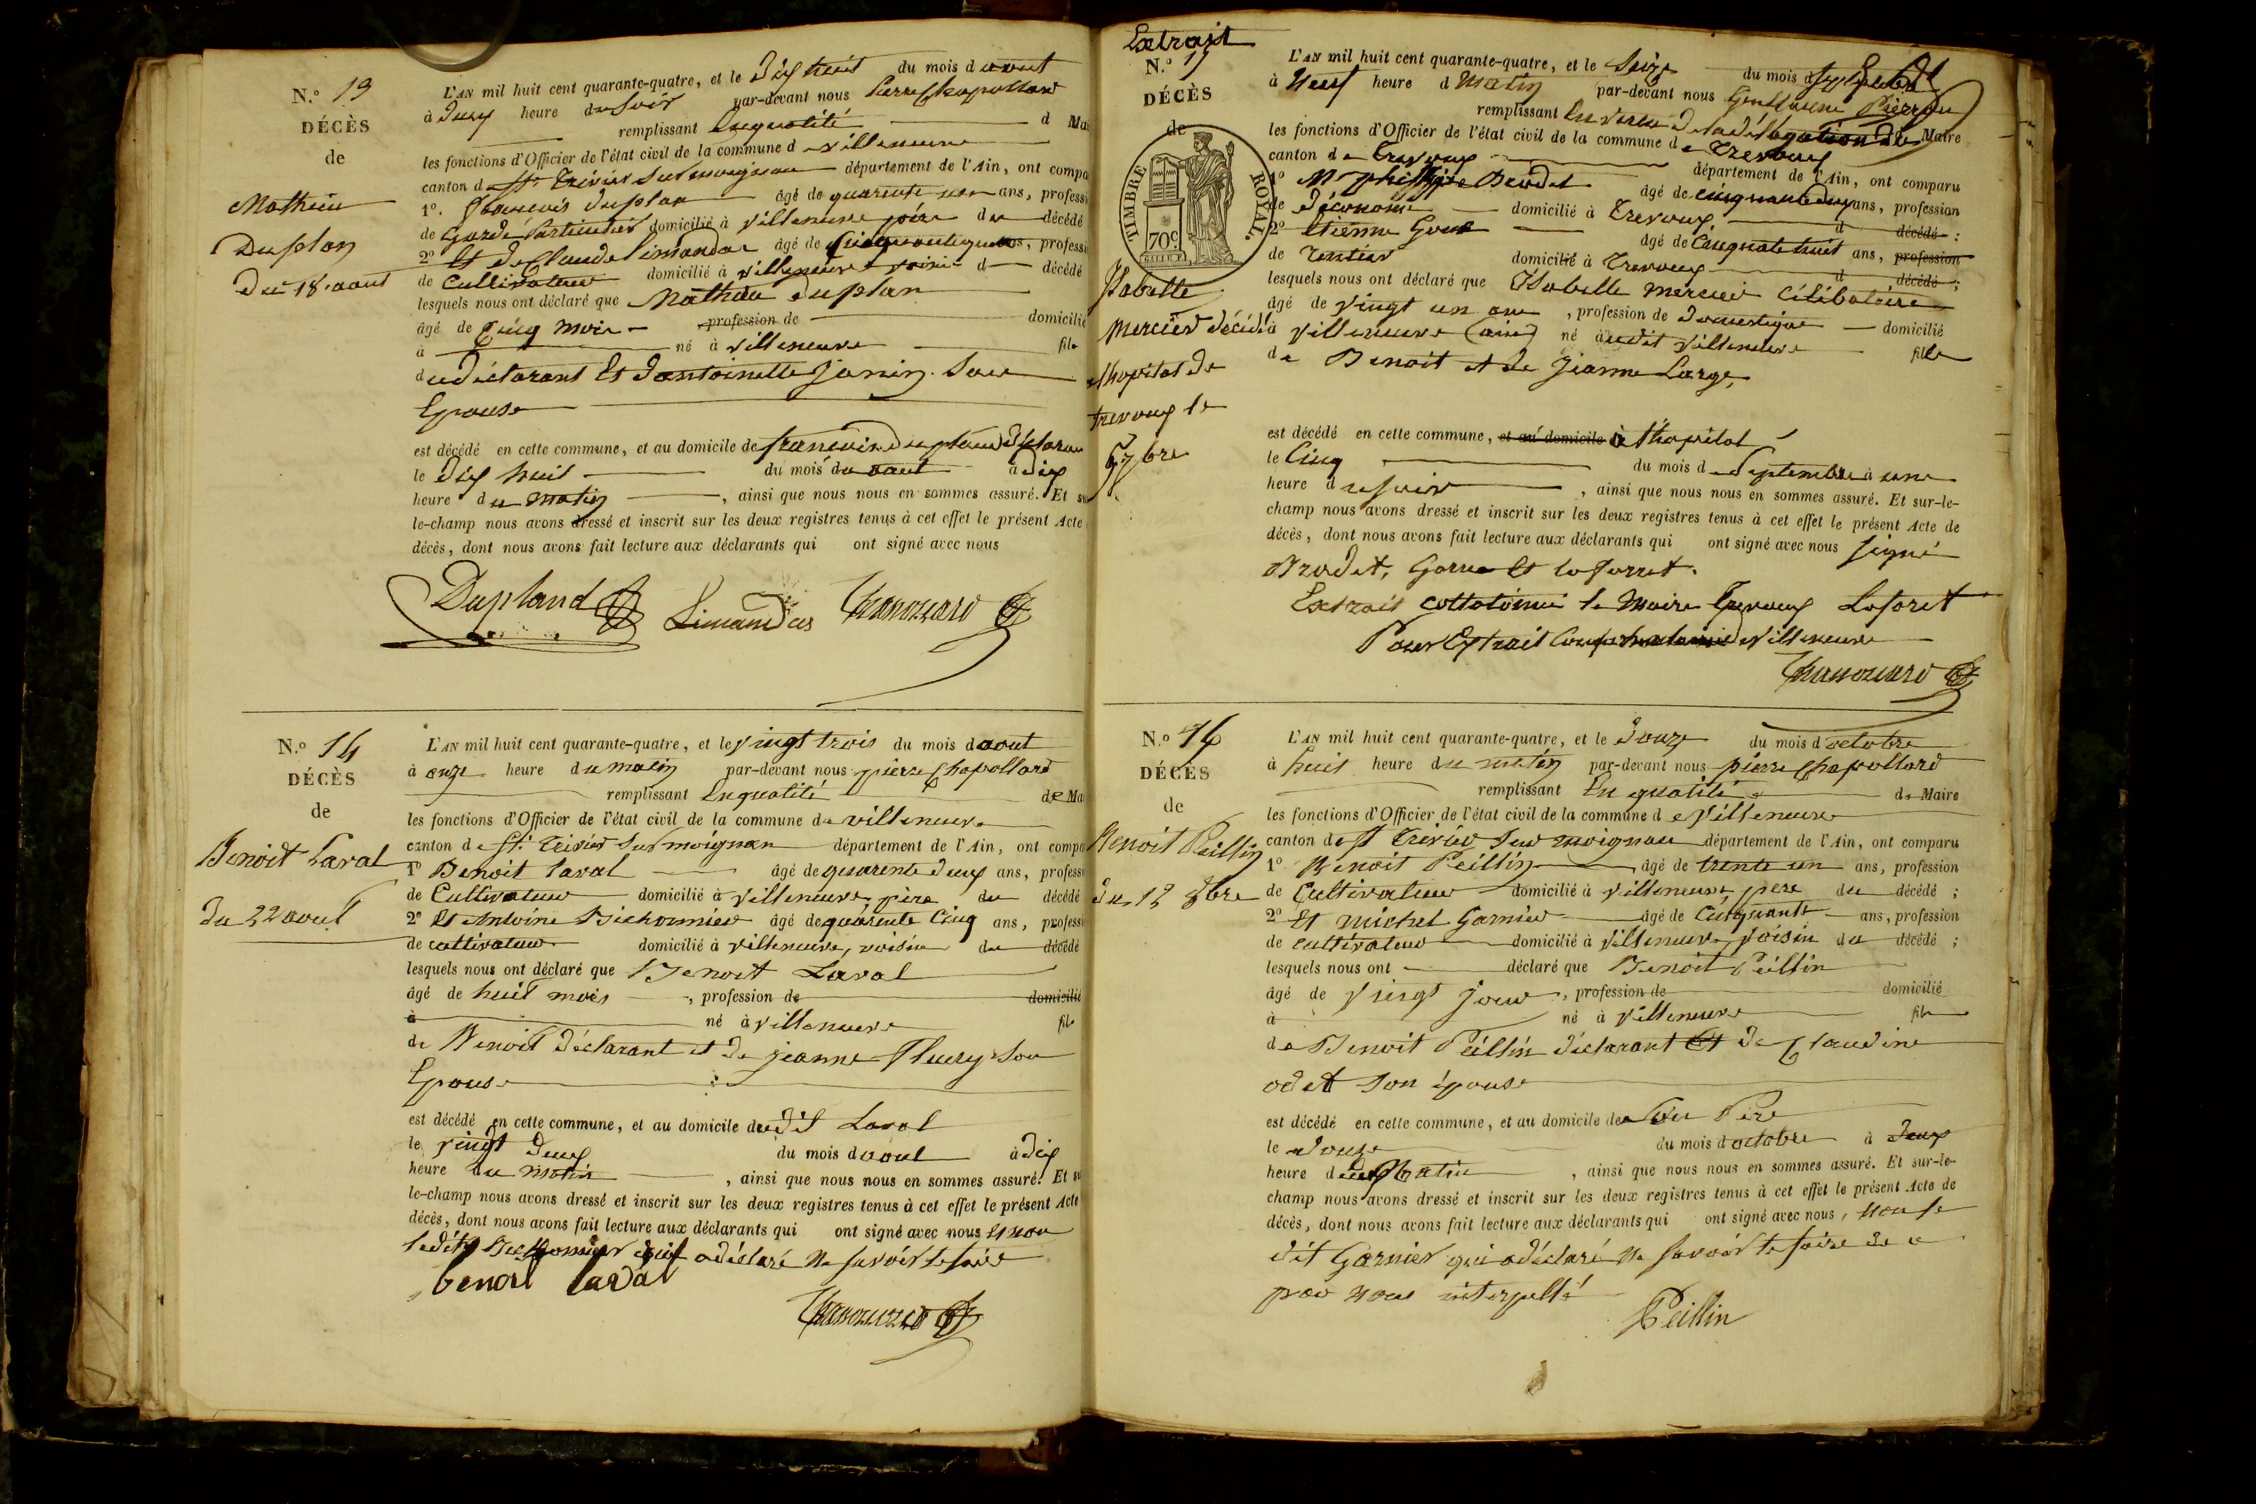 N.º 13
DÉCÈS
de
Mathieu
Duplan
du 18 aout
L'AN mil huit cent quarante-quatre, et le dix huit du mois d aout
à deux heure du soir par-devant nous Pierre Chapollard
remplissant En qualité d Ma
les fonctions d'Officier de l'état civil de la commune de villeneuve
canton de St. Trivier Sur moignan département de l'Ain, ont compa
1º. François duplan âgé de quarente un ans, profess
de Garde Particulier domicilié à villeneuve père du décédé
2º Et de Claude limandas âgé de Cinquante ans, profess
de Cultivateur domicilié à villeneuve voisin d décédé
lesquels nous ont déclaré que Mathieu duplan
âgé de Cinq mois profession de domicilié
à né à villeneuve fils
du déclarant Et d'antoinette Janin Son
Epouse
est décédé en cette commune, et au domicile de francois duplan déclaran
le dix huit du mois d aout à dix
heure du matin, ainsi que nous nous en sommes assuré. Et su
le-champ nous avons dressé et inscrit sur les deux registres tenus à cet effet le présent Acte
décès, dont nous avons fait lecture aux déclarants qui ont signé avec nous
Dupland Limandas Chapollard
N.º 14
DÉCÈS
de
Benoit Laval
du 22 aout
L'AN mil huit cent quarante-quatre, et le vingt trois du mois d aout
à onze heure du matin par-devant nous pierre Chapollard
remplissant En qualité de Ma
les fonctions d'Officier de l'état civil de la commune de villeneuve
canton de St. Trivier Sur moignan département de l'Ain, ont compa
1º Benoit Laval âgé de quarente deux ans, profess
de Cultivateur domicilié à villeneuve père du décédé
2º Et Antoine Bichonnier âgé de quarente Cinq ans, profess
de cultivateur domicilié à villeneuve, voisin du décédé
lesquels nous ont déclaré que Benoit Laval
âgé de huit mois, profession de domicilié
à né à villeneuve fils
de Benoit déclarant et de jeanne Fleury Son
Epouse
est décédé en cette commune, et au domicile dudit Laval
le vingt deux du mois d aout à dix
heure du matin, ainsi que nous nous en sommes assuré. Et su
le-champ nous avons dressé et inscrit sur les deux registres tenus à cet effet le présent Acte
décès, dont nous avons fait lecture aux déclarants qui ont signé avec nous et non
ledit Bichonnier qui a déclaré ne savoir le faire
benoit laval
Chapollard
Extrait
N.º 15
DÉCÈS
de
TIMBRE ROYAL.
70c.
Isabelle
Mercier décédé à
l'hopital de
trevoux le
5 7bre
L'AN mil huit cent quarante-quatre, et le Seize du mois d septembre
à Neuf heure d matin par-devant nous Guillaume Pierre
remplissant En vertu de la délégation de Maire
les fonctions d'Officier de l'état civil de la commune de Trevoux
canton de Trevoux département de l'Ain, ont comparu
1º Mr philippe Brodet âgé de cinquante deux ans, profession
de économe domicilié à Trevoux d décédé ;
2º Etienne Gorre âgé de Cinquante huit ans, profession
de rentier domicilié à Trevoux d décédé ;
lesquels nous ont déclaré que Isabelle mercier Célibataire
âgé de vingt un ans, profession de domestique domicilié
à villeneuve (ain) né audit villeneuve fille
de Benoit et de Jeanne Large,
est décédé en cette commune, et au domicile à l'hopital
le Cinq du mois de Septembre à une
heure du soir, ainsi que nous nous en sommes assuré. Et sur-le-
champ nous avons dressé et inscrit sur les deux registres tenus à cet effet le présent Acte de
décès, dont nous avons fait lecture aux déclarants qui ont signé avec nous signé
Brodet, Gorre Et laforret.
Extrait collationné le Maire Trevoux Laforet
Pour Extrait villeneuve
Chapollard
N.º 16
DÉCÈS
de
Benoit Peillin
du 12 8bre
L'AN mil huit cent quarante-quatre, et le douze du mois d'octobre
à huit heure du matin par-devant nous pierre Chapollard
remplissant En qualité de Maire
les fonctions d'Officier de l'état civil de la commune de villeneuve
canton de St Trivier Sur moignan département de l'Ain, ont comparu
1º Benoit Peillin âgé de trente un ans, profession
de Cultivateur domicilié à villeneuve père du décédé ;
2º Et michel Garnier âgé de Cinquante ans, profession
de cultivateur domicilié à villeneuve, voisin du décédé ;
lesquels nous ont déclaré que Benoit Peillin
âgé de vingt jour, profession de domicilié
à né à villeneuve fils
de Benoit Peillin déclarant Et de Claudine
odet son épouse
est décédé en cette commune, et au domicile de son Père
le douze du mois d'octobre à deux
heure du Matin, ainsi que nous nous en sommes assuré. Et sur-le-
champ nous avons dressé et inscrit sur les deux registres tenus à cet effet le présent Acte de
décès, dont nous avons fait lecture aux déclarants qui ont signé avec nous, non le
dit Garnier qui a déclaré ne savoir le faire de ce
par nous interpellé
Peillin